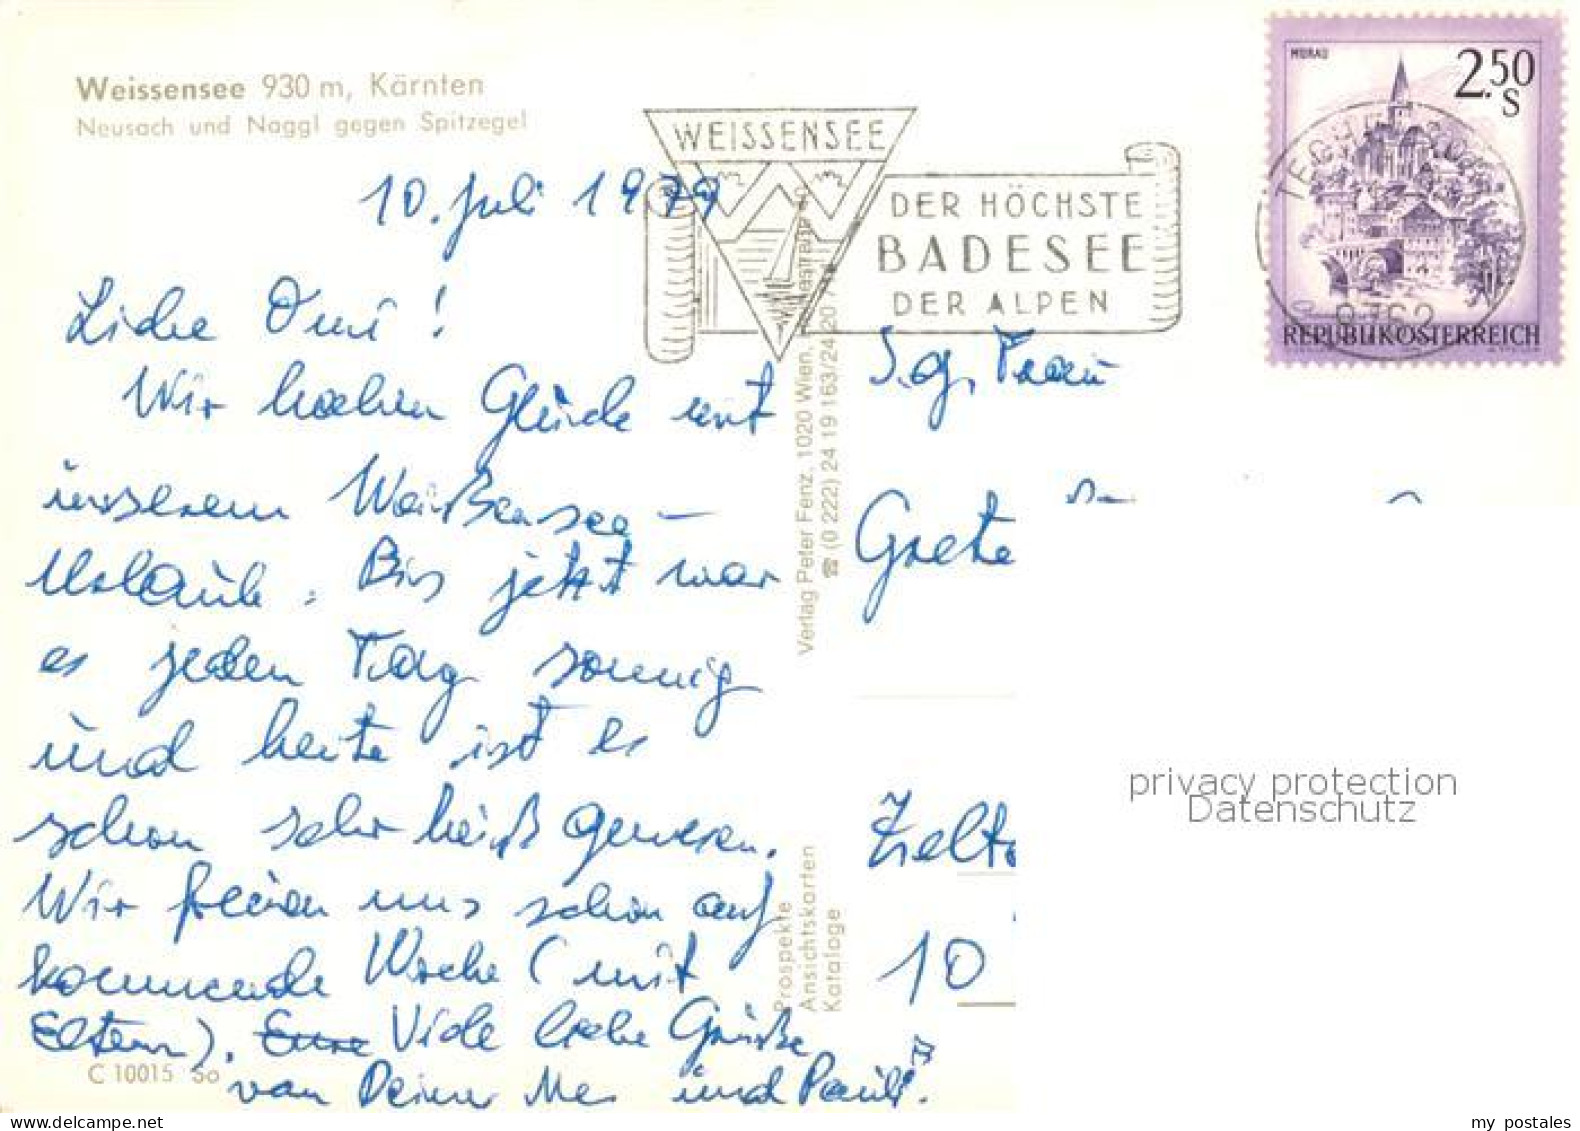 Weissensee 930 m, Kärnten
Neusach und Naggl gegen Spitzegel
WEISSENSEE
DER HÖCHSTE
BADESEE
DER ALPEN
MURAU
2.50
S
REPUBLIK ÖSTERREICH
9762
10. Juli 1979
Liebe Omi!
Wir haben Glück mit
unserem Weißensee-
Urlaub. Bis jetzt war
es jeden Tag sonnig
und heute ist es
schon sehr heiß gewesen.
Wir freuen uns schon auf
kommende Woche (mit
Eltern). Eure Viele liebe Grüße
von Deiner und Pauli.
C 10015 So
Verlag Peter Fenz, 1020 Wien,
☎ (0 222) 24 19 163/24
Prospekte
Ansichtskarten
Kataloge
S.g. Frau
Grete
Zelt
10
privacy protection
Datenschutz
my postales